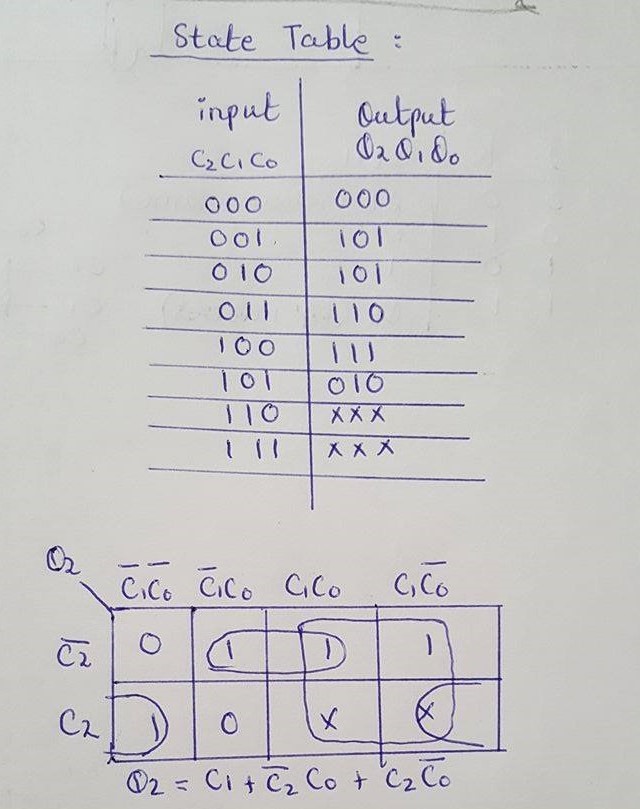 State Table :
input Output
C₂C₁C₀ Q₂Q₁Q₀
000 000
001 101
010 101
011 110
100 111
101 010
110 xxx
111 xxx
Q₂ C̅₁C̅₀ C̅₁C₀ C₁C₀ C₁C̅₀
C̅₂ 0 1 1 1
C₂ 1 0 x x
Q₂ = C₁ + C̅₂ C₀ + C₂C̅₀